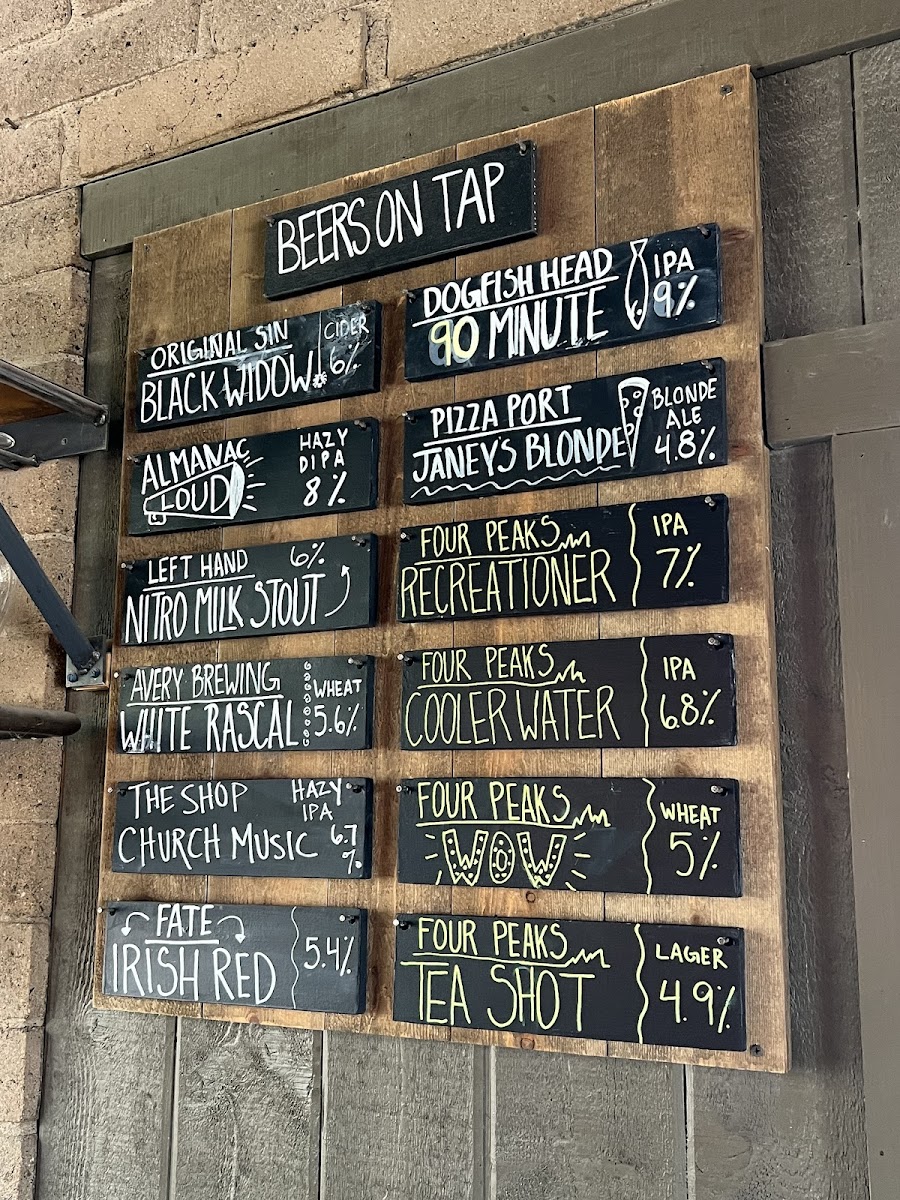 BEERS ON TAP
ORIGINAL SIN
CIDER
BLACK WIDOW
6%
ALMANAC
LOUD
HAZY
DIPA
8%
LEFT HAND
6%
NITRO MILK STOUT
AVERY BREWING
WHITE RASCAL
WHEAT
5.6%
THE SHOP
CHURCH MUSIC
HAZY
IPA
6.7
%
FATE
IRISH RED
5.4%
DOGFISH HEAD
90 MINUTE
IPA
9%
PIZZA PORT
JANEY'S BLONDE
BLONDE
ALE
4.8%
FOUR PEAKS
RECREATIONER
IPA
7%
FOUR PEAKS
COOLER WATER
IPA
6.8%
FOUR PEAKS
WOW
WHEAT
5%
FOUR PEAKS
TEA SHOT
LAGER
4.9%